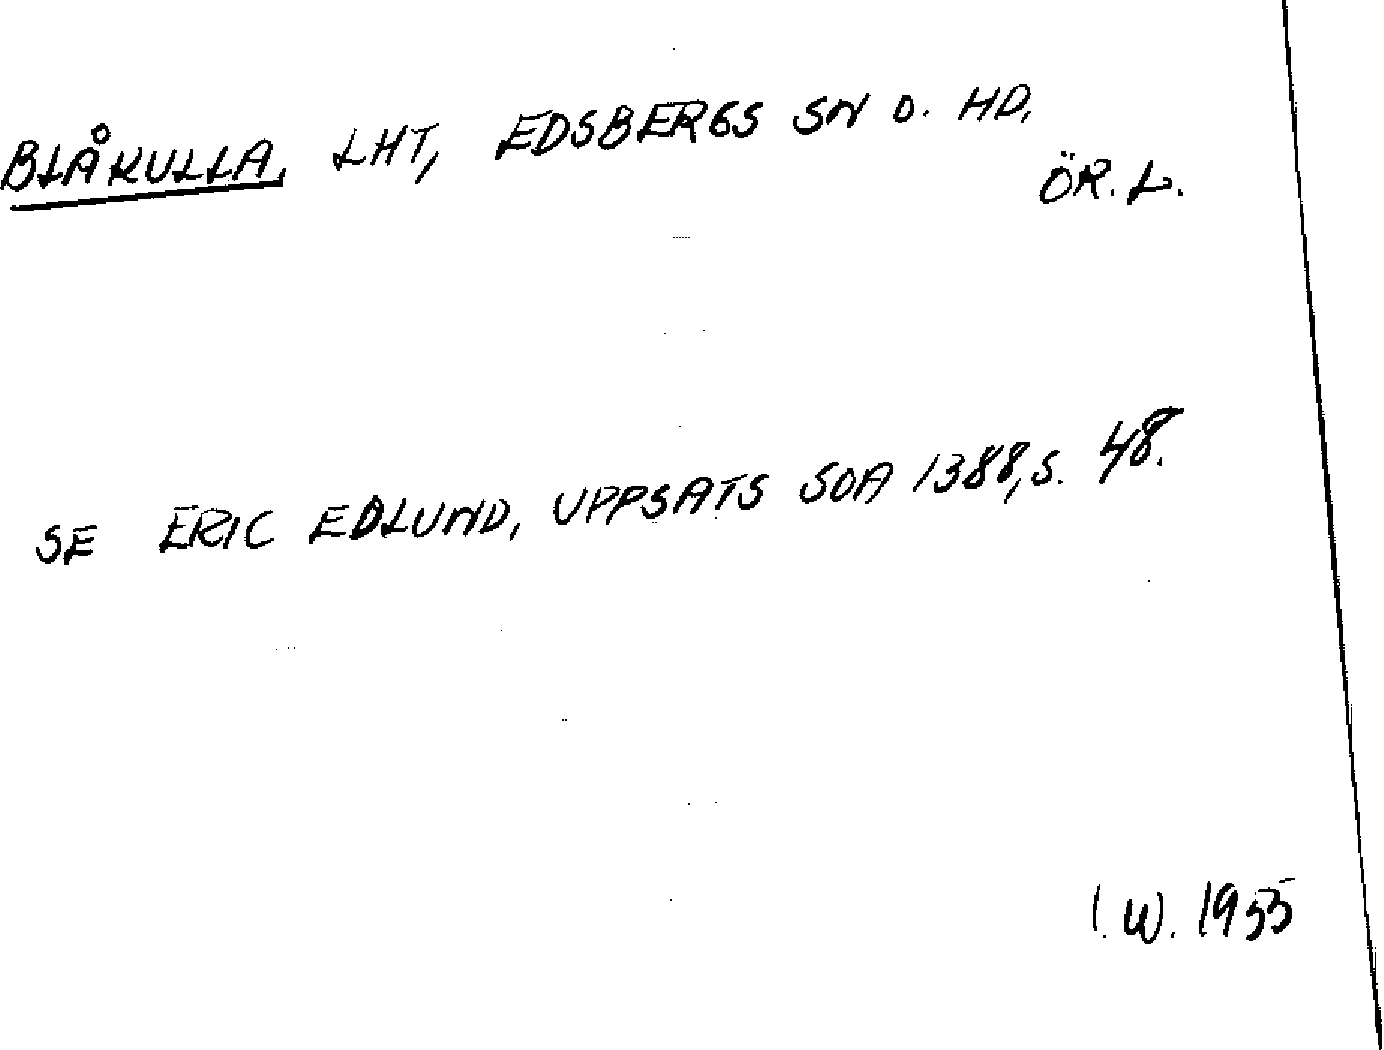 BLÅKULLA, LHT, EDSBERGS SN O. HD,
ÖR. L.
SE ERIC EDLUND, UPPSATS SOA 1388, S. 48.
I. W. 1955